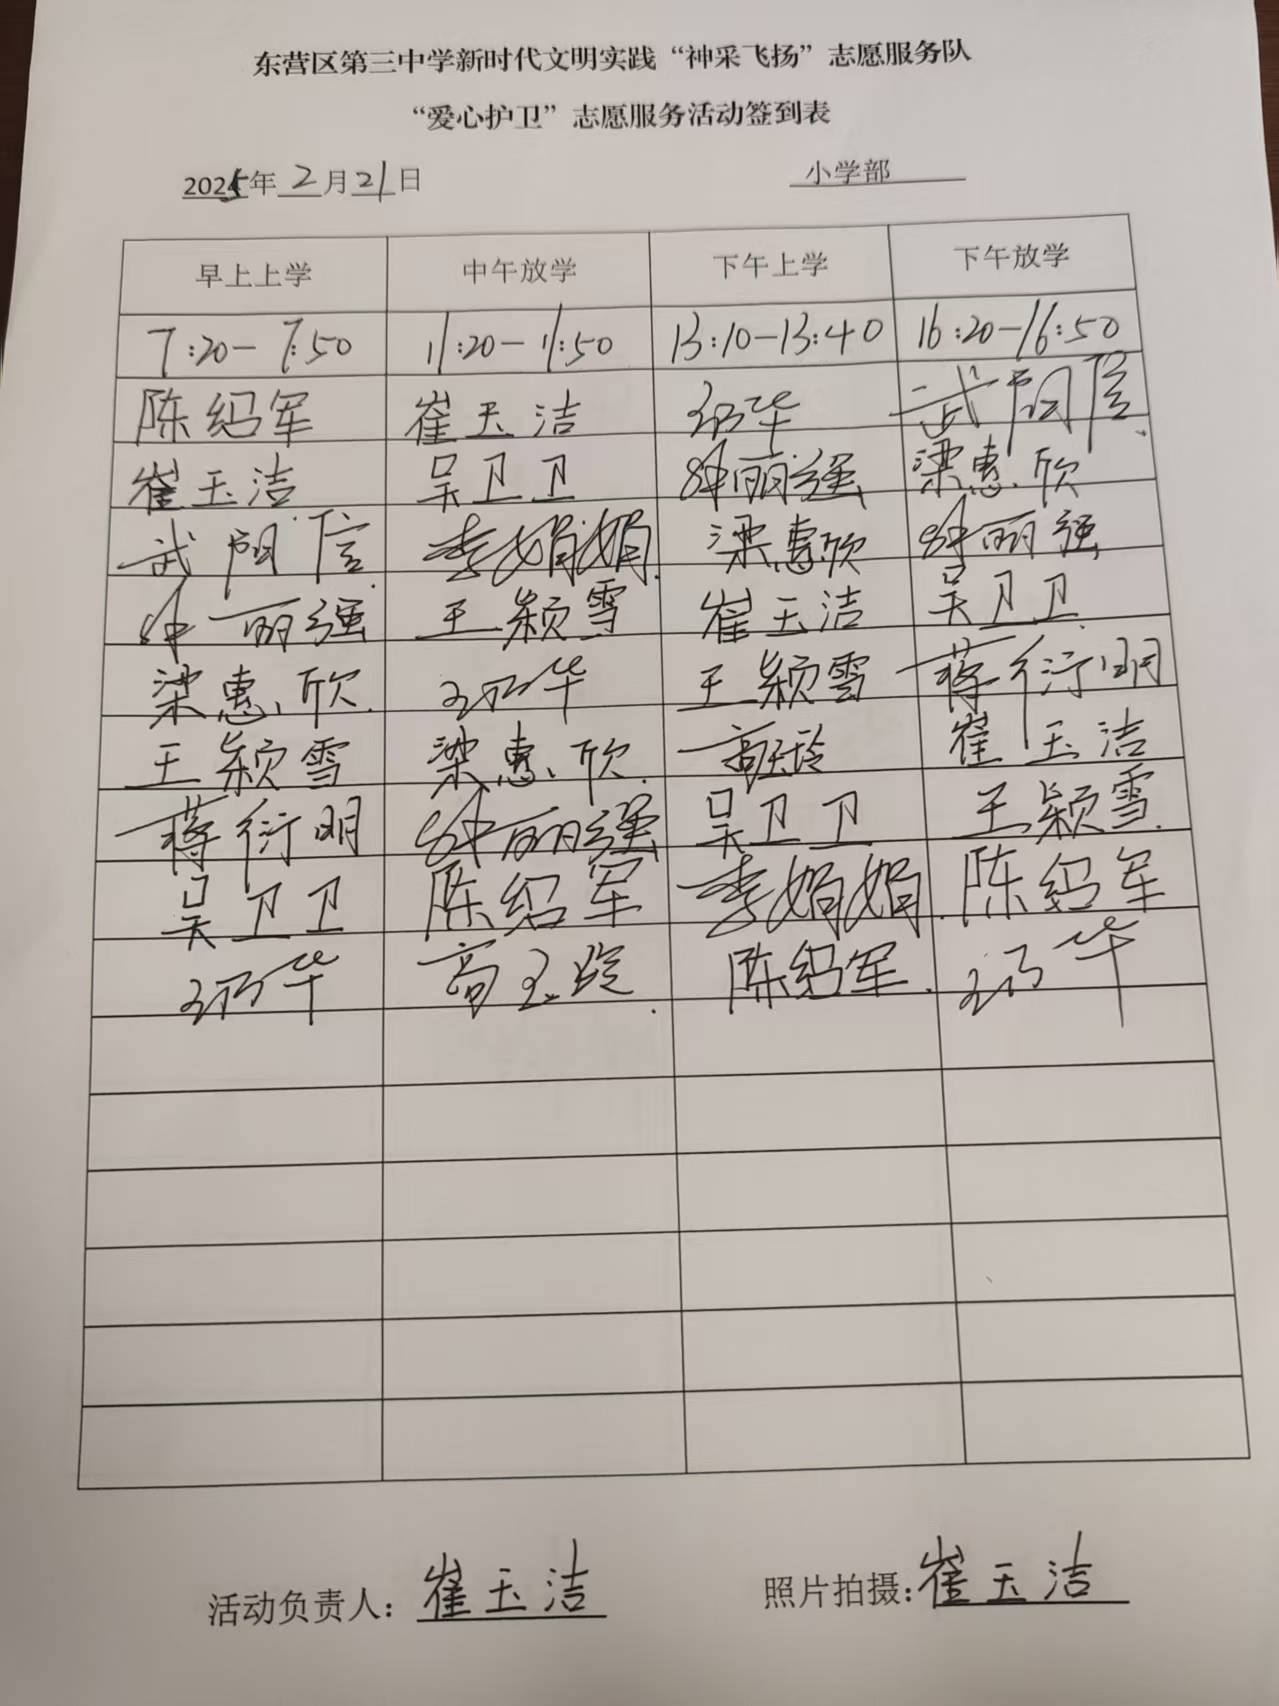 东营区第三中学新时代文明实践“神采飞扬”志愿服务队
“爱心护卫”志愿服务活动签到表
2025年 2 月 21 日 小学部
早上上学 中午放学 下午上学 下午放学
7:20-7:50 11:20-11:50 13:10-13:40 16:20-16:50
陈绍军 崔玉洁 华 武阳信
崔玉洁 吴卫卫 钟丽强 梁惠欣
武阳信 李娟娟 梁惠欣 钟丽强
钟丽强 王颖雪 崔玉洁 吴卫卫
梁惠欣 华 王颖雪 蒋衍明
王颖雪 梁惠欣 高玉玲 崔玉洁
蒋衍明 钟丽强 吴卫卫 王颖雪
吴卫卫 陈绍军 李娟娟 陈绍军
华 高玉 陈绍军 华
活动负责人：崔玉洁 照片拍摄：崔玉洁